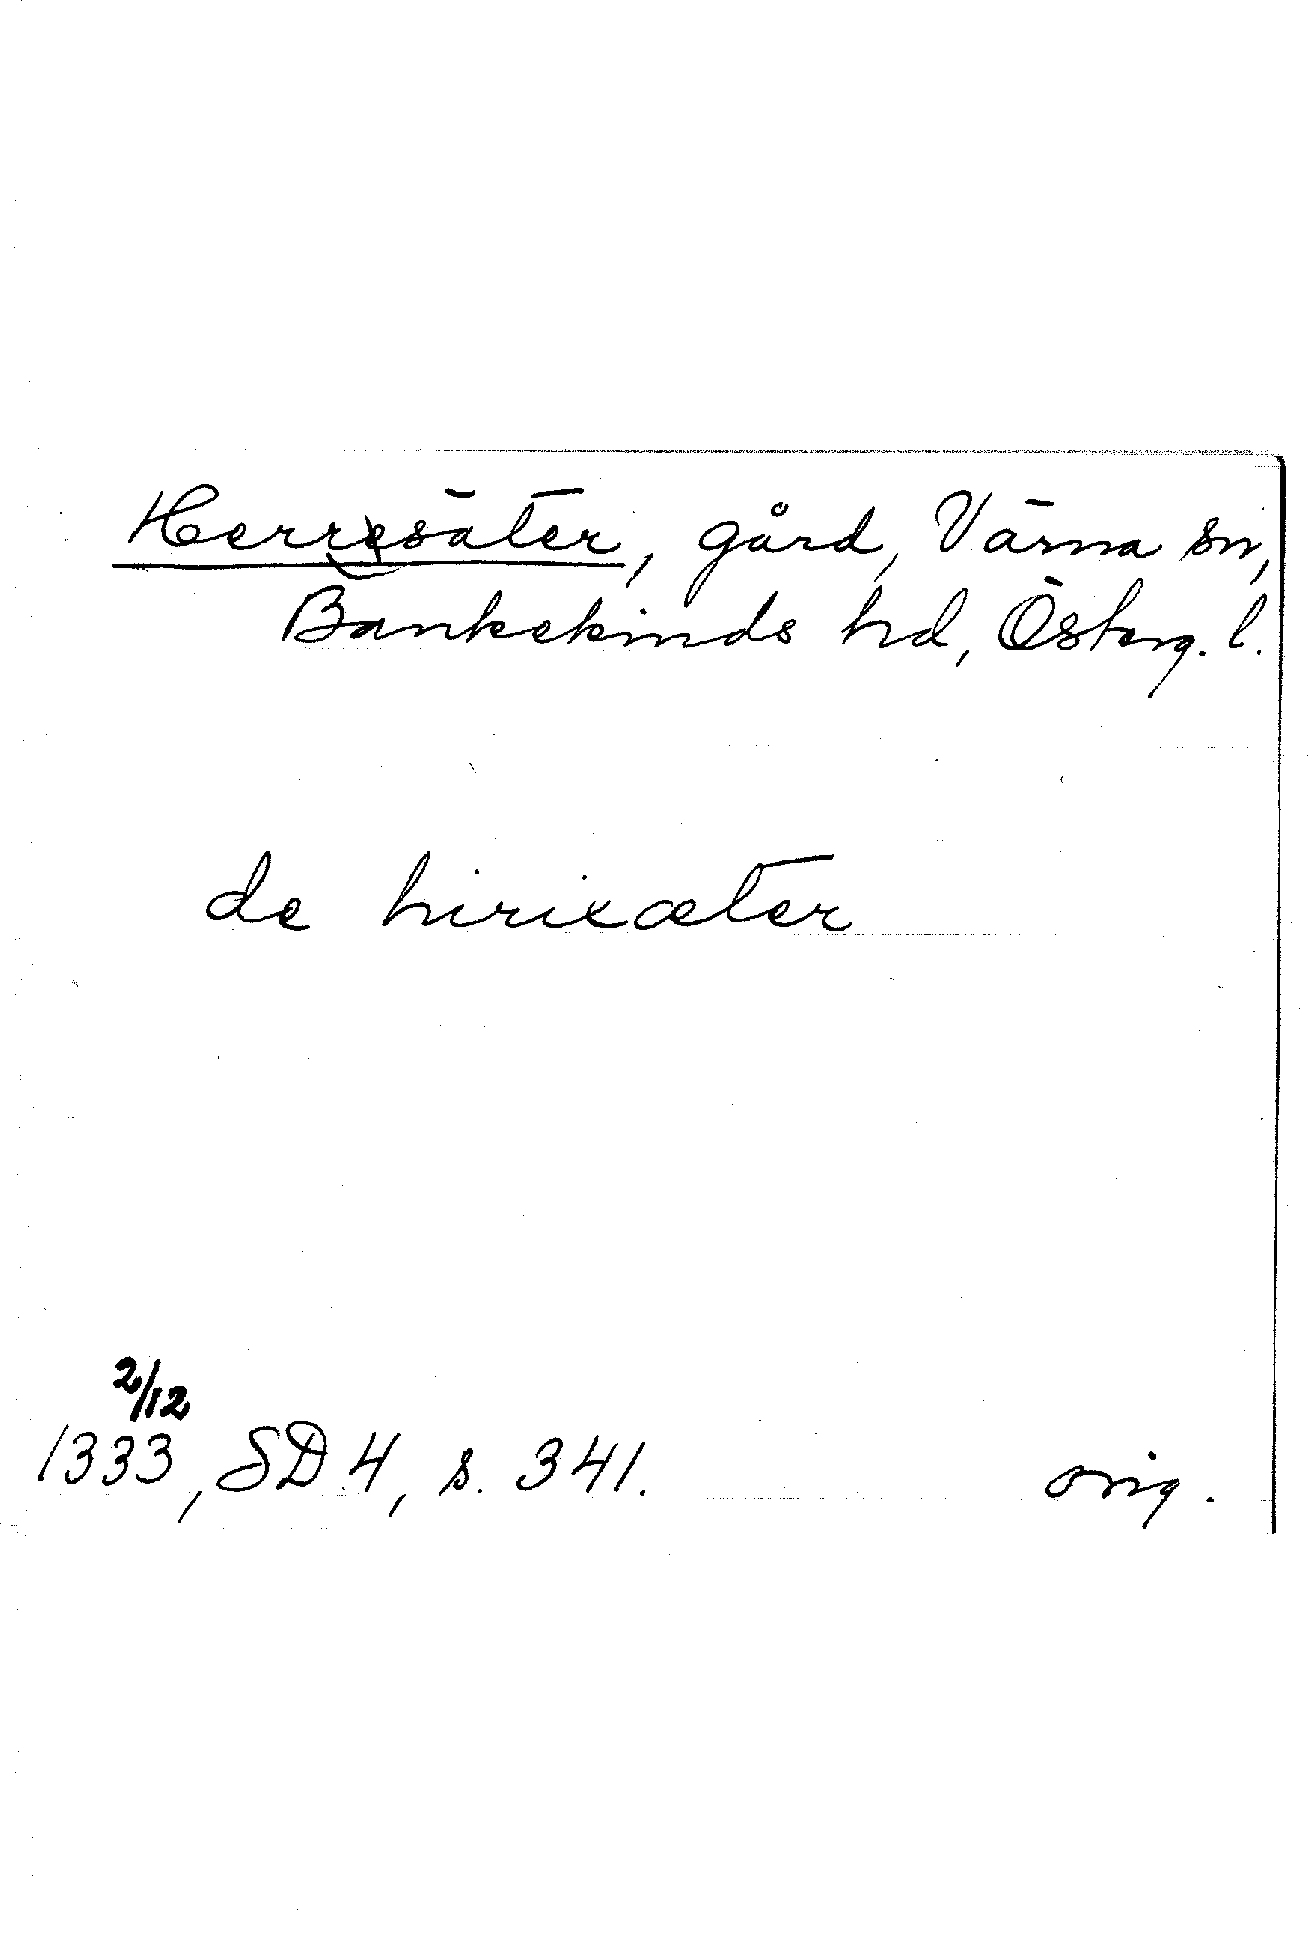 Herrsäter, gård, Värna sn,
Bankekinds hd, Österg. l.
de hirixæter
2/12
1333, SD 4, s. 341. orig.